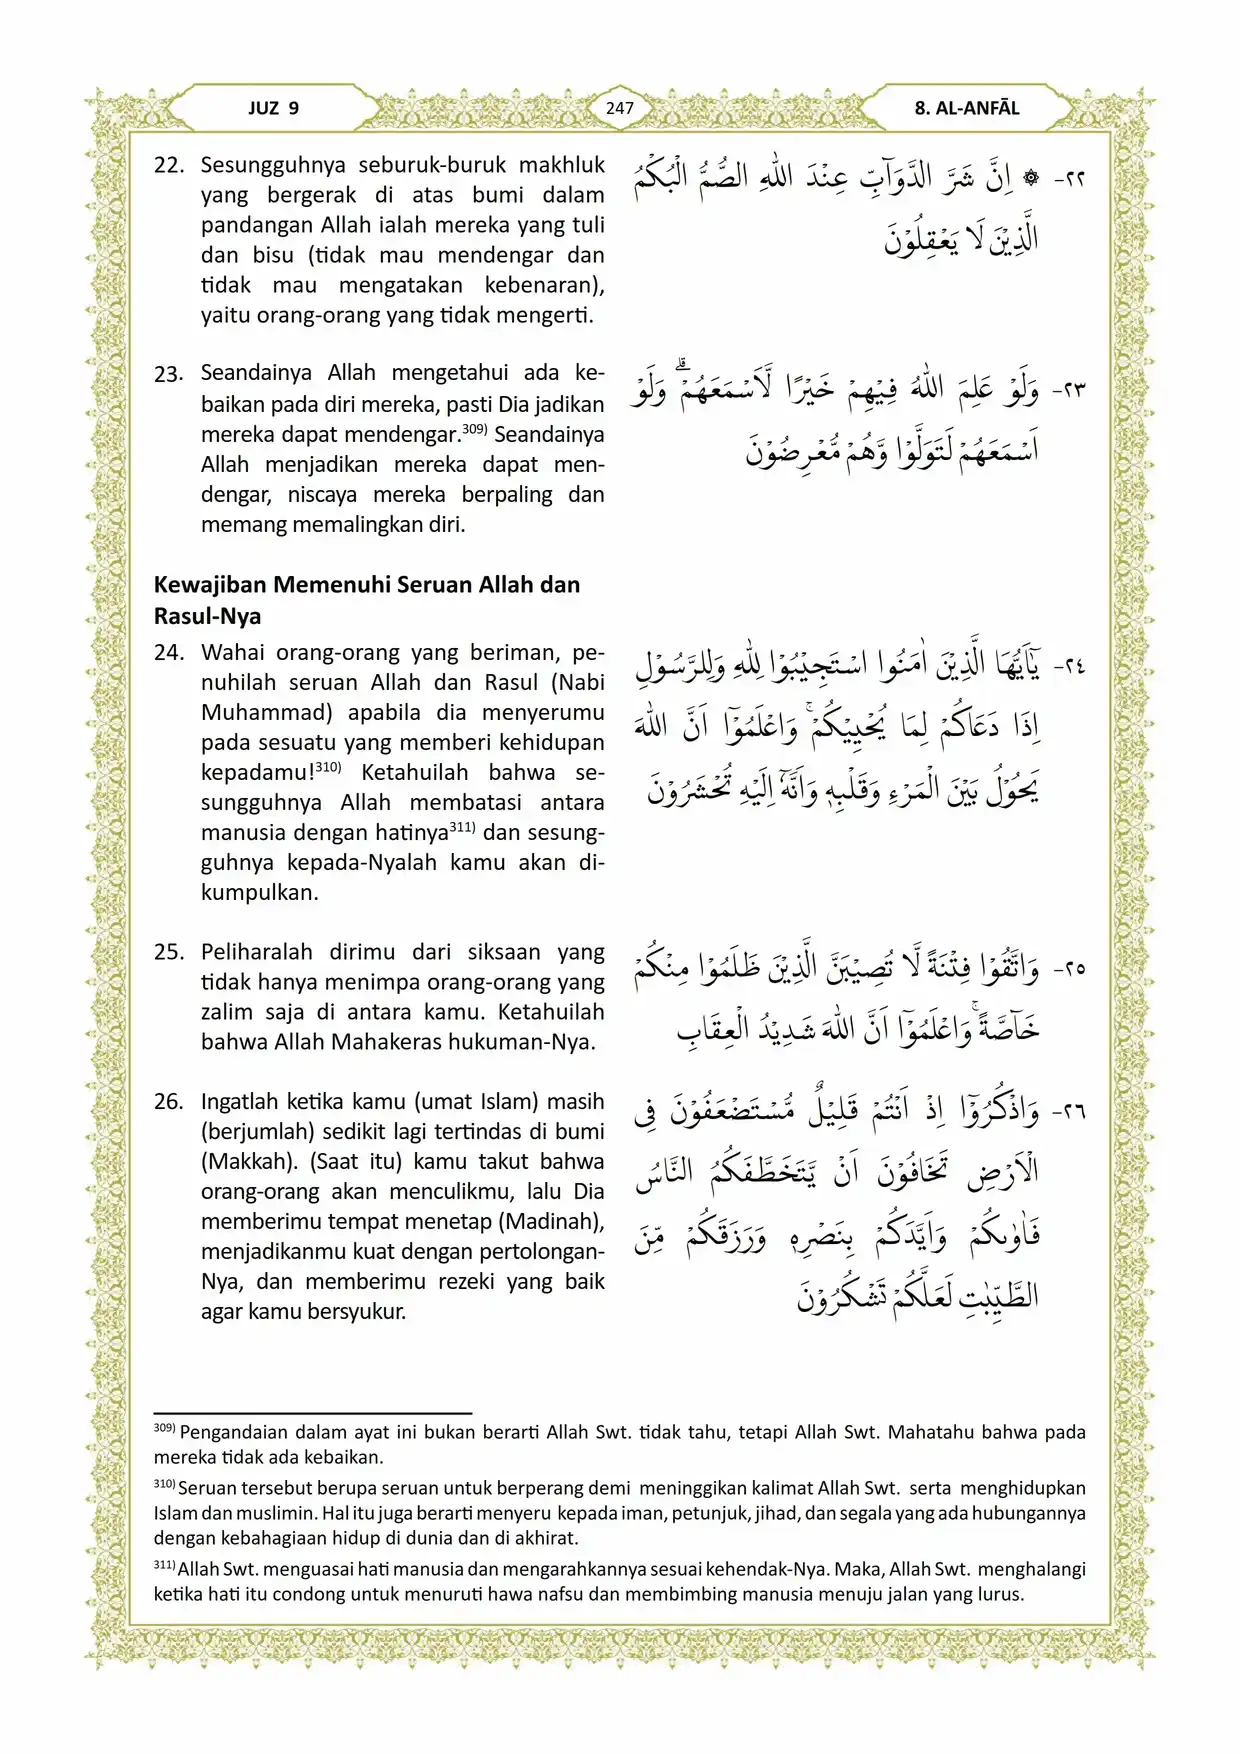 JUZ 9
247
8. AL-ANFĀL
22. Sesungguhnya seburuk-buruk makhluk
yang bergerak di atas bumi dalam
pandangan Allah ialah mereka yang tuli
dan bisu (tidak mau mendengar dan
tidak mau mengatakan kebenaran),
yaitu orang-orang yang tidak mengerti.
٢٢- ۞ اِنَّ شَرَّ الدَّوَاۤبِّ عِنْدَ اللّٰهِ الصُّمُّ الْبُكْمُ
الَّذِيْنَ لَا يَعْقِلُوْنَ
23. Seandainya Allah mengetahui ada ke-
baikan pada diri mereka, pasti Dia jadikan
mereka dapat mendengar.309) Seandainya
Allah menjadikan mereka dapat men-
dengar, niscaya mereka berpaling dan
memang memalingkan diri.
٢٣- وَلَوْ عَلِمَ اللّٰهُ فِيْهِمْ خَيْرًا لَّاَسْمَعَهُمْۗ وَلَوْ
اَسْمَعَهُمْ لَتَوَلَّوْا وَّهُمْ مُّعْرِضُوْنَ
Kewajiban Memenuhi Seruan Allah dan
Rasul-Nya
24. Wahai orang-orang yang beriman, pe-
nuhilah seruan Allah dan Rasul (Nabi
Muhammad) apabila dia menyerumu
pada sesuatu yang memberi kehidupan
kepadamu!310) Ketahuilah bahwa se-
sungguhnya Allah membatasi antara
manusia dengan hatinya311) dan sesung-
guhnya kepada-Nyalah kamu akan di-
kumpulkan.
٢٤- يٰٓاَيُّهَا الَّذِيْنَ اٰمَنُوا اسْتَجِيْبُوْا لِلّٰهِ وَلِلرَّسُوْلِ
اِذَا دَعَاكُمْ لِمَا يُحْيِيْكُمْۚ وَاعْلَمُوْٓا اَنَّ اللّٰهَ
يَحُوْلُ بَيْنَ الْمَرْءِ وَقَلْبِهٖ وَاَنَّهٗٓ اِلَيْهِ تُحْشَرُوْنَ
25. Peliharalah dirimu dari siksaan yang
tidak hanya menimpa orang-orang yang
zalim saja di antara kamu. Ketahuilah
bahwa Allah Mahakeras hukuman-Nya.
٢٥- وَاتَّقُوْا فِتْنَةً لَّا تُصِيْبَنَّ الَّذِيْنَ ظَلَمُوْا مِنْكُمْ
خَاۤصَّةًۚ وَاعْلَمُوْٓا اَنَّ اللّٰهَ شَدِيْدُ الْعِقَابِ
26. Ingatlah ketika kamu (umat Islam) masih
(berjumlah) sedikit lagi tertindas di bumi
(Makkah). (Saat itu) kamu takut bahwa
orang-orang akan menculikmu, lalu Dia
memberimu tempat menetap (Madinah),
menjadikanmu kuat dengan pertolongan-
Nya, dan memberimu rezeki yang baik
agar kamu bersyukur.
٢٦- وَاذْكُرُوْٓا اِذْ اَنْتُمْ قَلِيْلٌ مُّسْتَضْعَفُوْنَ فِى
الْاَرْضِ تَخَافُوْنَ اَنْ يَّتَخَطَّفَكُمُ النَّاسُ
فَاٰوٰىكُمْ وَاَيَّدَكُمْ بِنَصْرِهٖ وَرَزَقَكُمْ مِّنَ
الطَّيِّبٰتِ لَعَلَّكُمْ تَشْكُرُوْنَ
309) Pengandaian dalam ayat ini bukan berarti Allah Swt. tidak tahu, tetapi Allah Swt. Mahatahu bahwa pada
mereka tidak ada kebaikan.
310) Seruan tersebut berupa seruan untuk berperang demi meninggikan kalimat Allah Swt. serta menghidupkan
Islam dan muslimin. Hal itu juga berarti menyeru kepada iman, petunjuk, jihad, dan segala yang ada hubungannya
dengan kebahagiaan hidup di dunia dan di akhirat.
311) Allah Swt. menguasai hati manusia dan mengarahkannya sesuai kehendak-Nya. Maka, Allah Swt. menghalangi
ketika hati itu condong untuk menuruti hawa nafsu dan membimbing manusia menuju jalan yang lurus.